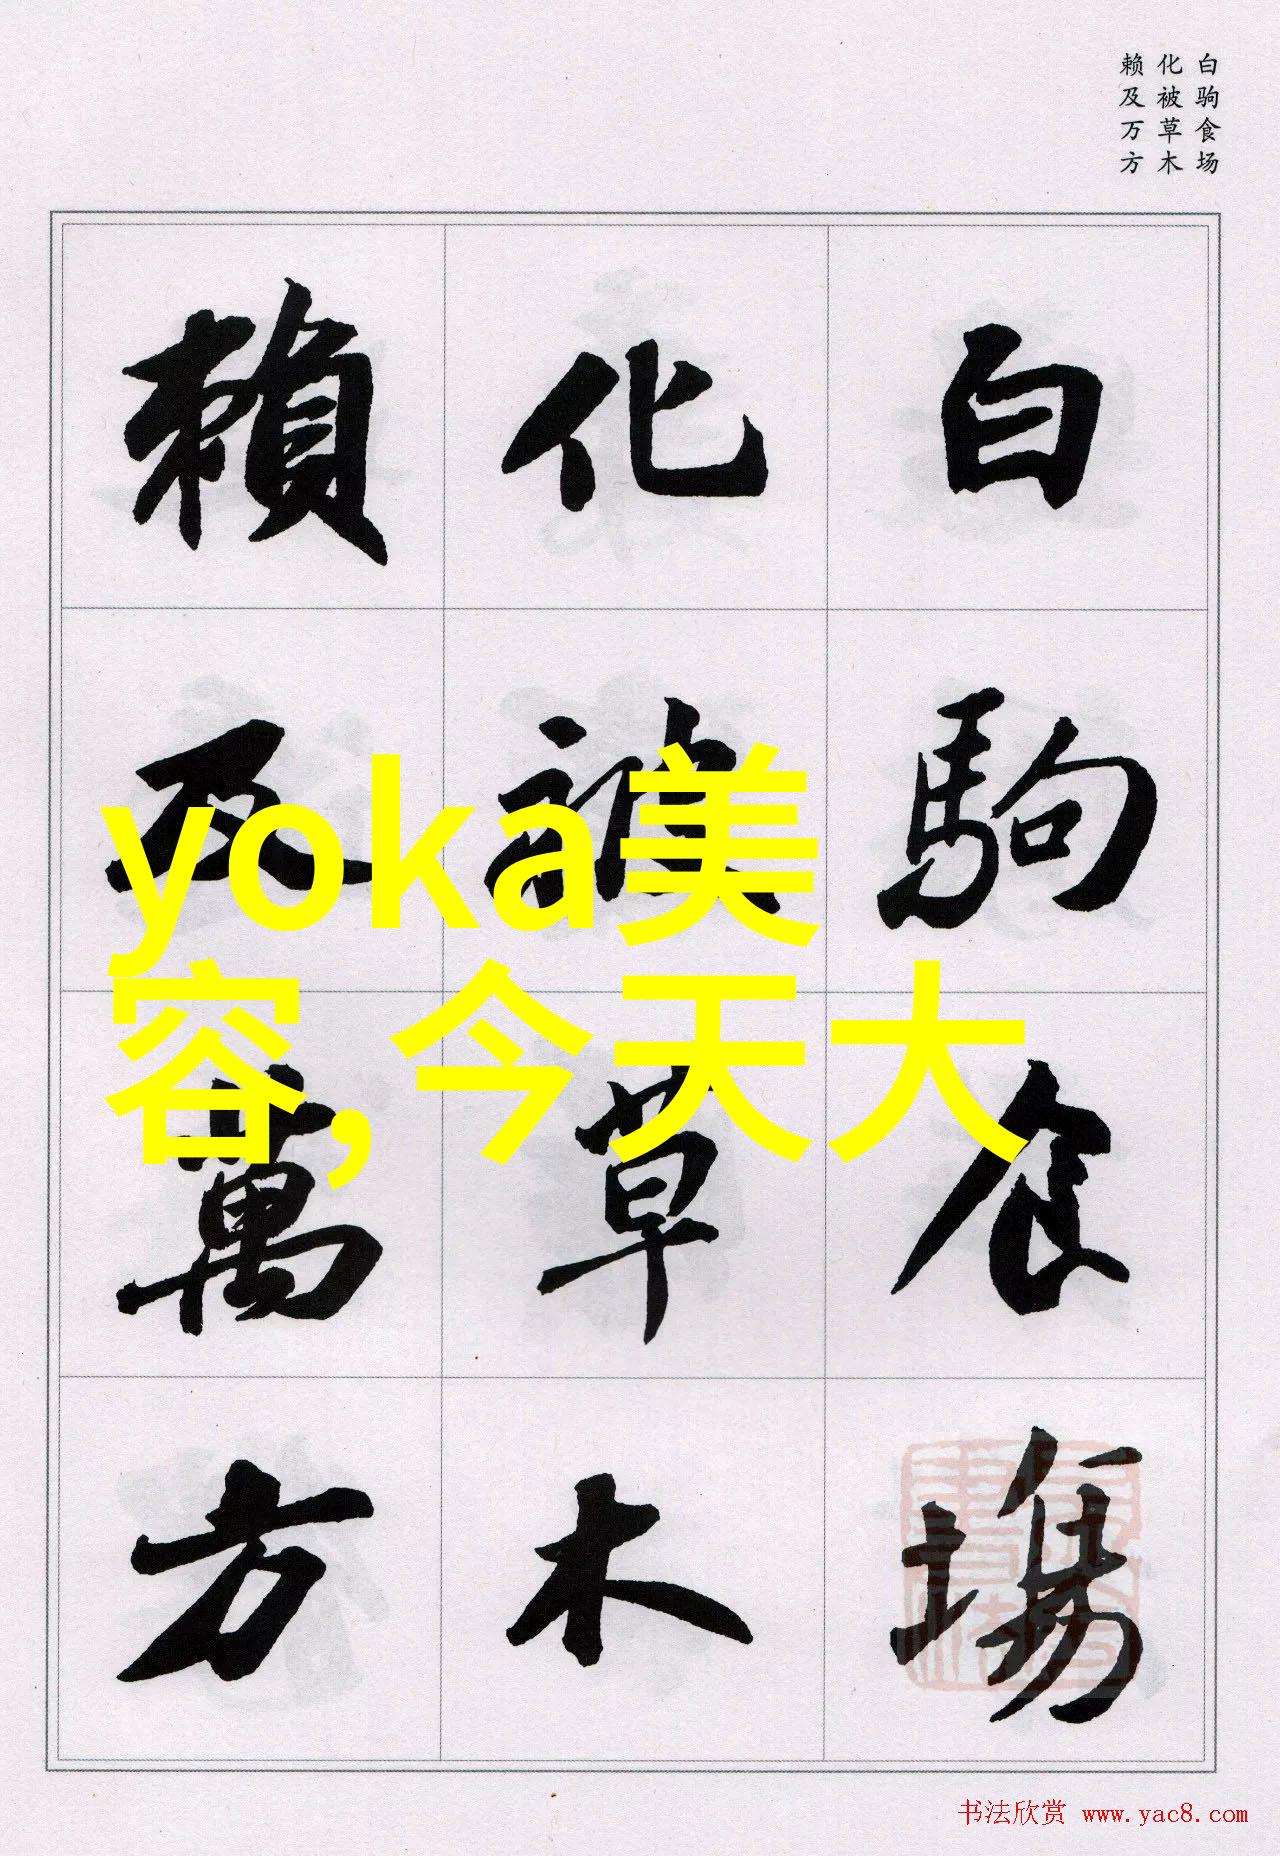 白驹食场
化被草木
赖及万方
白駒食場
化被草木
賴及萬方
yoka美
容,今天大
书法欣赏 www.yac8.com